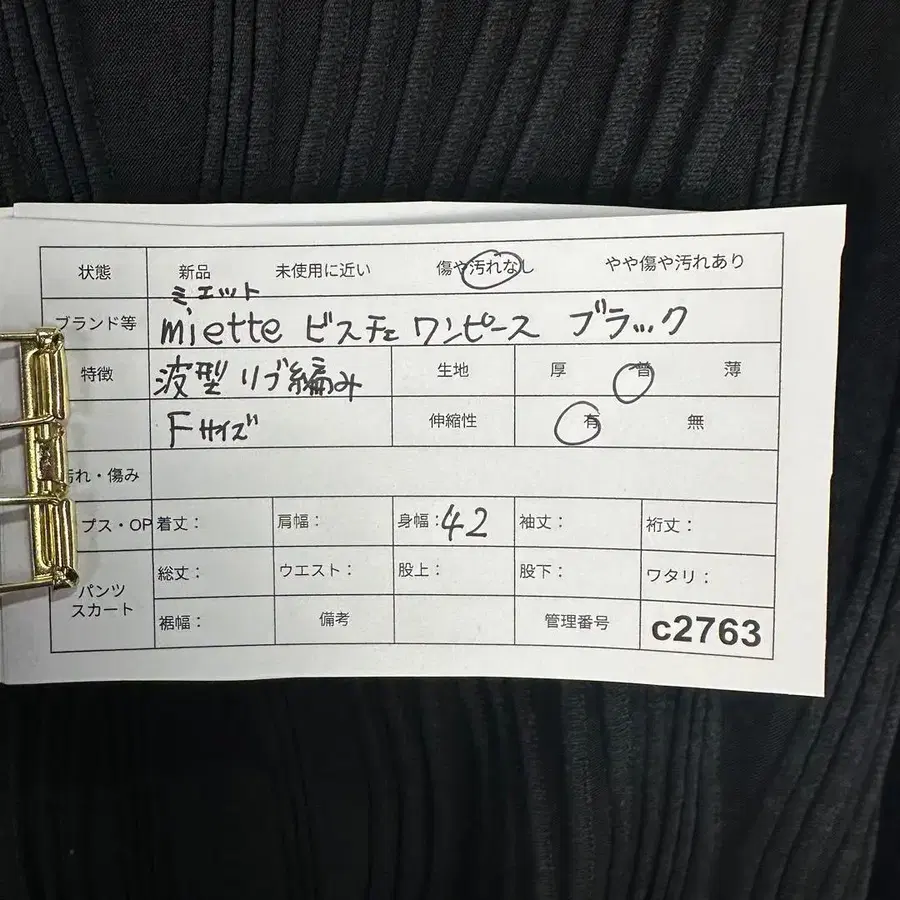 状態 新品 未使用に近い 傷や汚れなし やや傷や汚れあり
ミエット
ブランド等 miette ビスチェ ワンピース ブラック
特徴 波型リブ編み 生地 厚 普 薄
Fサイズ 伸縮性 有 無
汚れ・傷み
プス・OP 着丈： 肩幅： 身幅：42 袖丈： 裄丈：
総丈： ウエスト： 股上： 股下： ワタリ：
パンツ
スカート
裾幅： 備考 管理番号 c2763